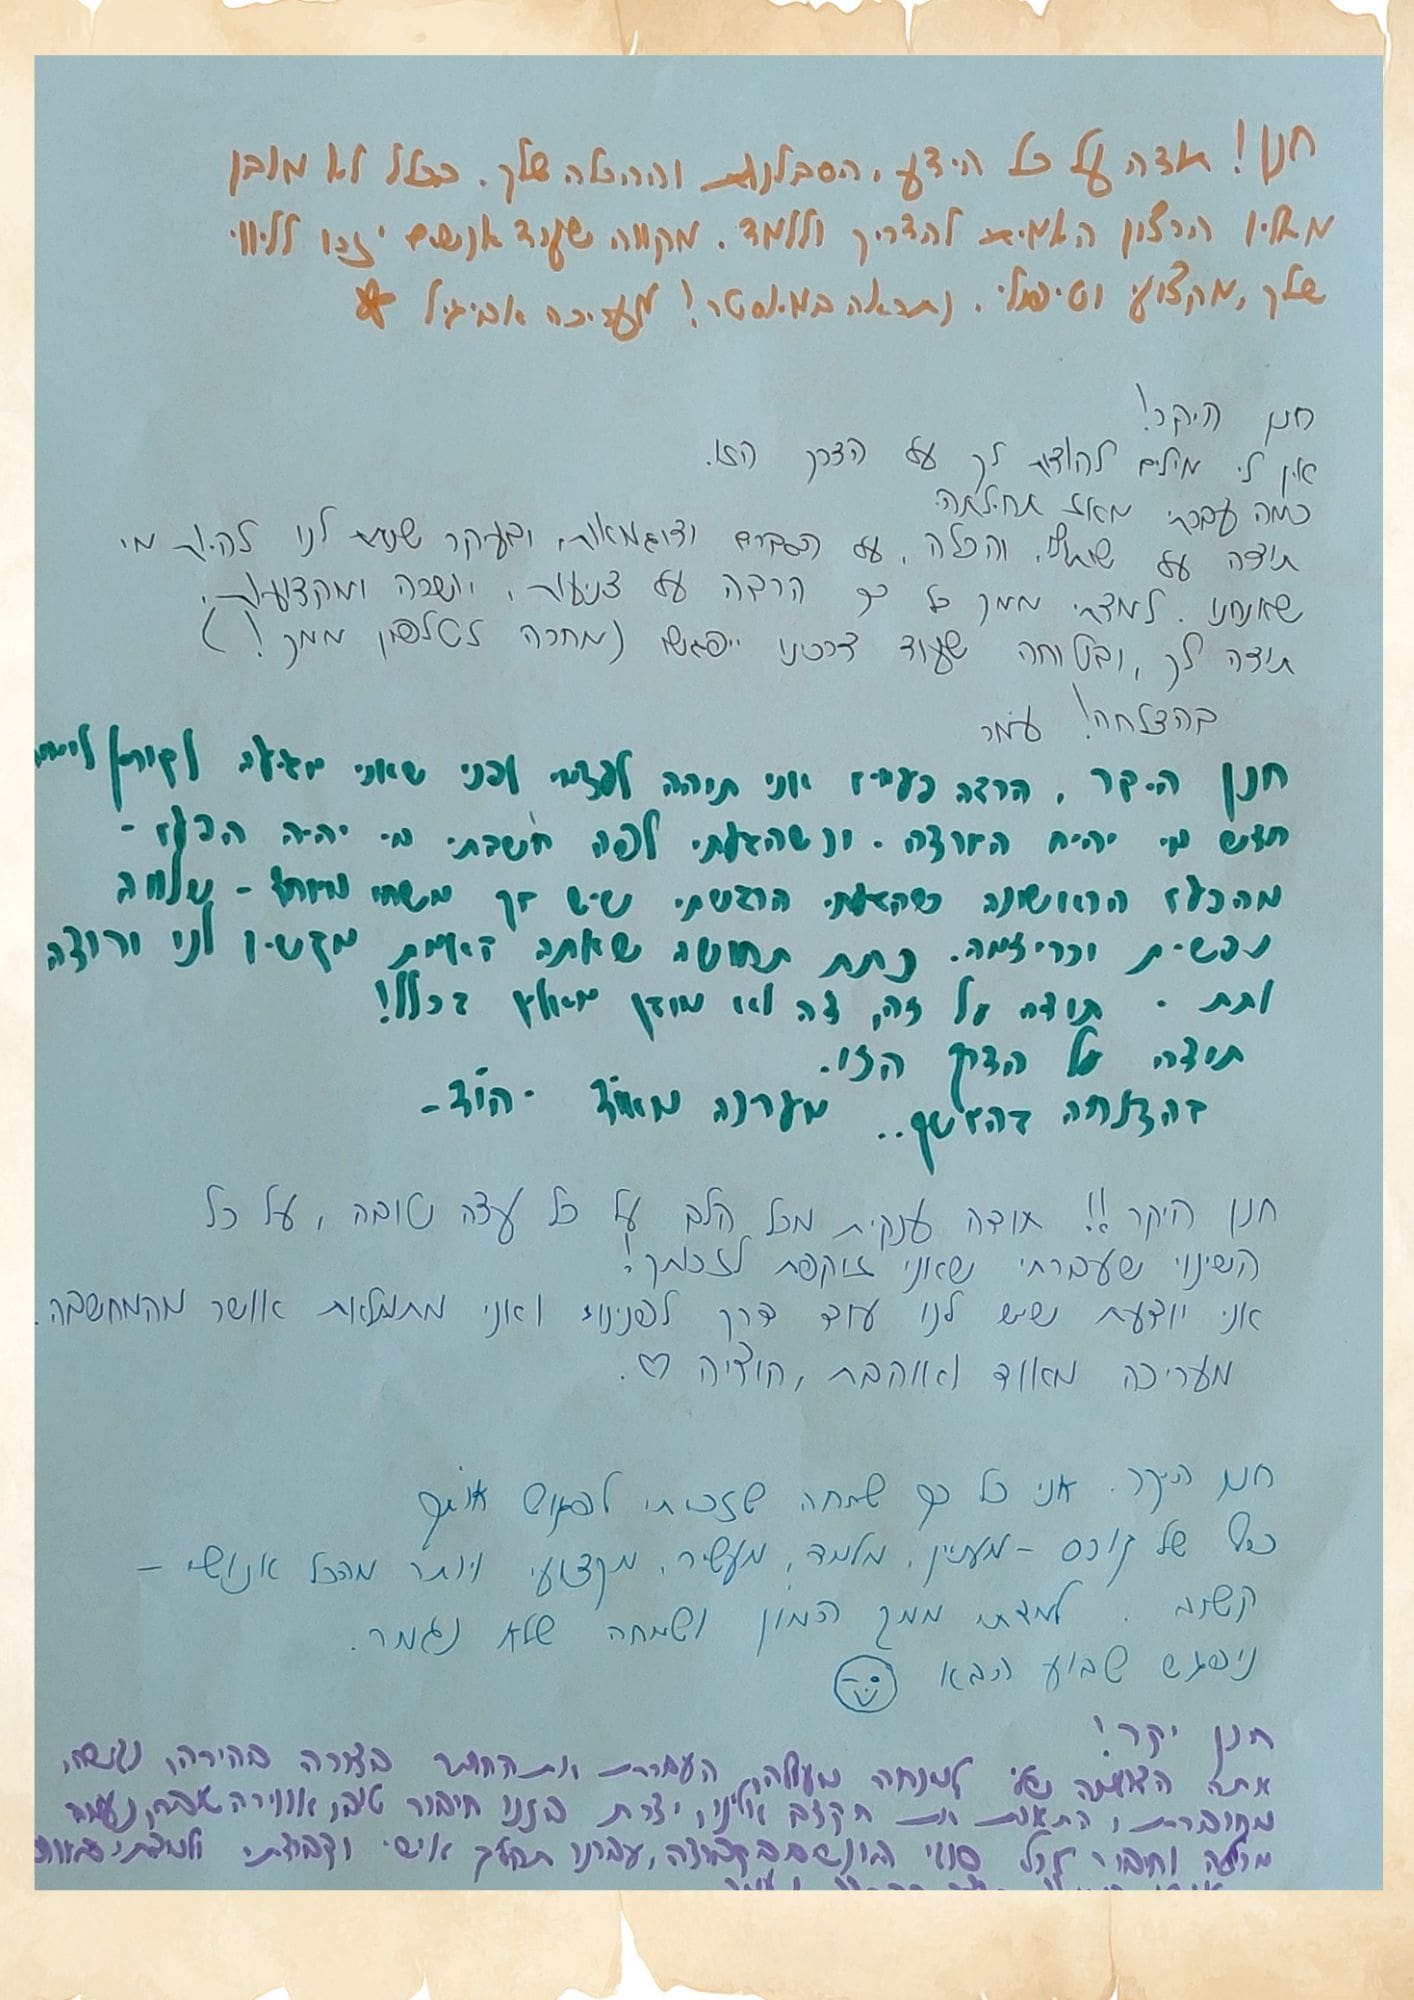 חנן! תודה על כל הידע, הסבלנות וההכלה שלך. בכלל לא מובן
מאליו הרצון האמיתי להדריך וללמד. מקווה שעוד אנשים יזכו לליווי
שלך, מקצועי וטיפולי. נתראה במינסטר! מעריכה אביגיל
חנן היקר!
אין לי מילים להודות לך על הדרך הזו.
כמה עברתי מאז תחילתה.
תודה על שיתוף, והכלה, על הסברים ודוגמאות, ובעיקר שנתת לנו להיות מי
שאנחנו. למדתי ממך כל כך הרבה על צניעות, יושרה ומקצועיות.
תודה לך, ובטוחה שעוד דרכנו ייפגשו (מחכה לטלפון ממך!)
בהצלחה! עומר
חנן היקר, הרבה פעמים אני תוהה לעצמי לפני שאני מגיעה לקורס
חדש מי יהיה המורה. וכשהגעתי לפה חשבתי מי יהיה הפעם -
מהפעם הראשונה כשהגעתי הרגשתי שיש בך משהו מיוחד - שלווה
נפשית וכריזמה. נתת תחושה שאתה באמת מקשיב לנו ורוצה
לתת. תודה על זה, זה לא מובן מאליו בכלל!
תודה על הדרך הזו.
בהצלחה בהמשך.. מעריכה מאוד - הוד -
חנן היקר!! תודה ענקית מכל הלב על כל עצה טובה, על כל
השינוי שעברתי שאני זוקפת לזכותך!
אני יודעת שיש לנו עוד דרך לפנינו ואני מתמלאת אושר מהמחשבה.
מעריכה מאוד ואוהבת, הודיה ♡.
חנן היקר. אני כל כך שמחה שזכיתי לפגוש אותך
של קורס - מעניין, מלמד, מעשיר, מקצועי ויותר מהכל אנושי -
קשוב. למדתי ממך המון ושמחה שלא נגמר.
ניפגש שבוע הבא
חנן יקר!
אתה למנחה מעולה, העברת את החומר בצורה בהירה, נגישה,
מחוברת, התאמת את הקצב אלינו, יצרת בנינו חיבור טוב, אווירה
וחיבור לכל סוגי האנשים בקבוצה, עברנו תהליך אישי וקבוצתי ולמדתי